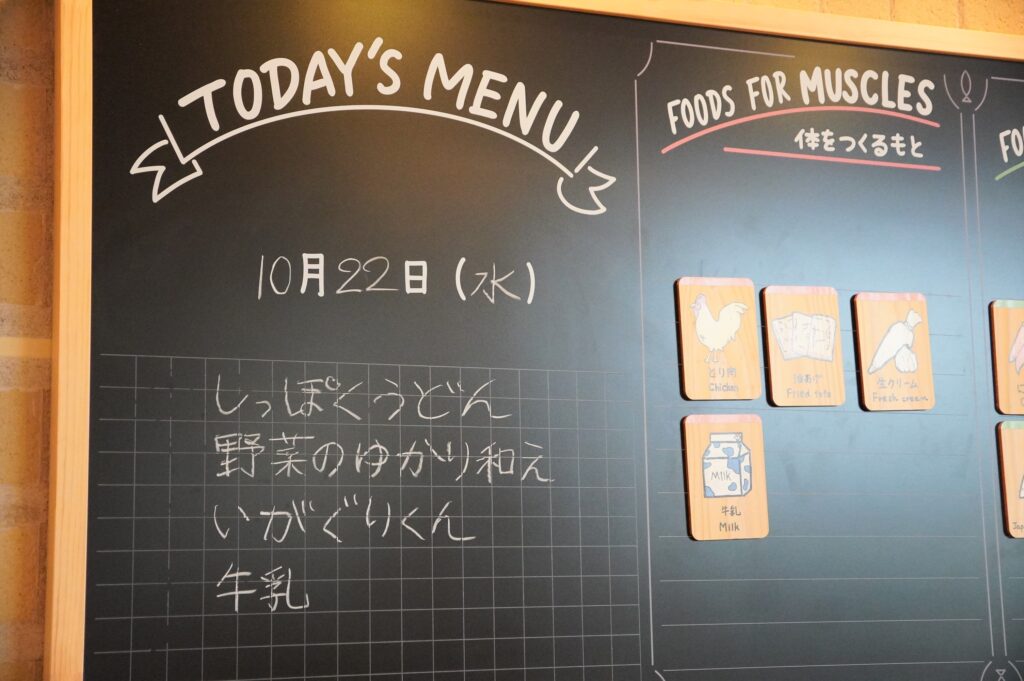 TODAY'S MENU
10月22日(水)
しっぽくうどん
野菜のゆかり和え
いがぐりくん
牛乳
FOODS FOR MUSCLES
体をつくるもと
とり肉
Chicken
油あげ
Fried tofu
生クリーム
Fresh cream
MILK
牛乳
Milk
FO